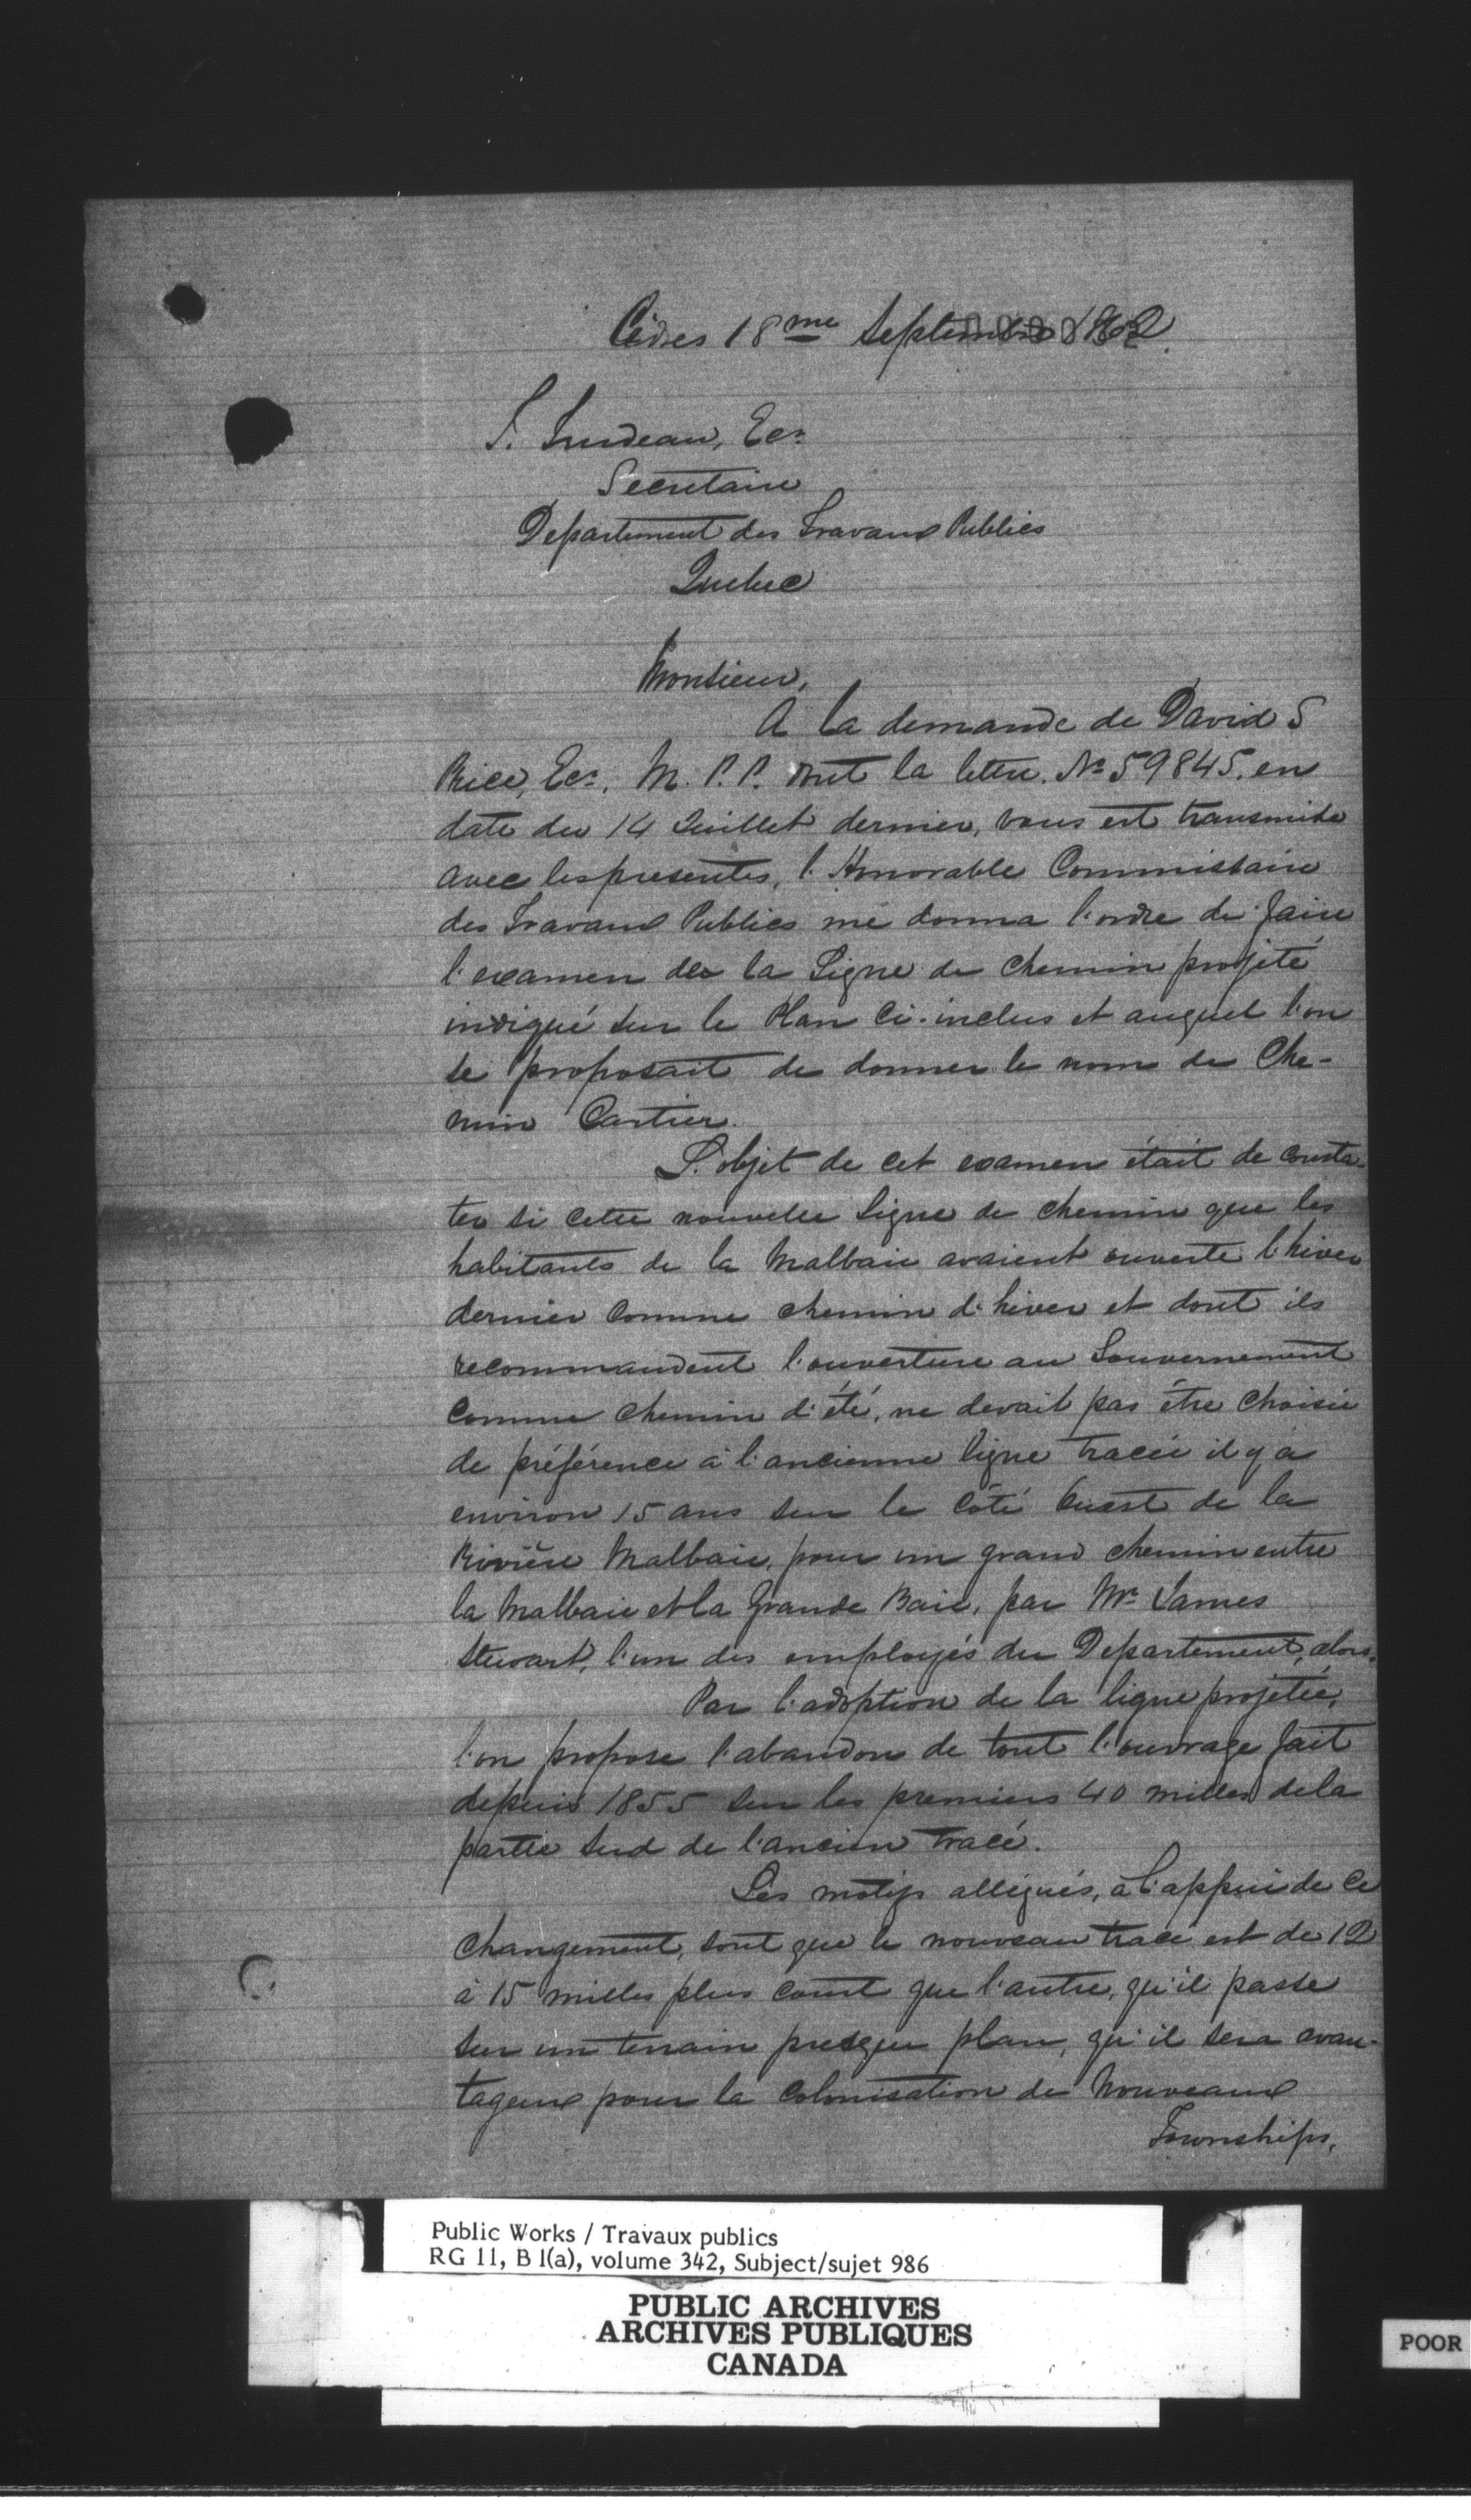 Cèdres 18me Septembre 1862
T. Trudeau, Ecr
Secretaire
Departement des Travaux Publics
Quebec
Monsieur,
A la demande de David S
Price, Ecr, M. P. P. dont la lettre No 59845, en
date du 14 Juillet dernier, vous est transmise
avec les presentes, l'Honorable Commissaire
des Travaux Publics me donna l'ordre de faire
l'examen de la Ligne de chemin projeté
indiqué sur le Plan ci-inclus et auquel l'on
se proposait de donner le nom de Che-
min Cartier.
L'objet de cet examen était de consta-
ter si cette nouvelle ligne de chemin que les
habitants de la Malbaie avaient ouverte l'hiver
dernier comme chemin d'hiver et dont ils
recommandent l'ouverture au Gouvernement
comme chemin d'été, ne devait pas être choisie
de préférence à l'ancienne ligne tracée il y a
environ 15 ans sur le côté Ouest de la
Rivière Malbaie, pour un grand chemin entre
la Malbaie et la Grande Baie, par Mr James
Stewart, l'un des employés du Departement, alors.
Par l'adoption de la ligne projetée,
l'on propose l'abandon de tout l'ouvrage fait
depuis 1855 sur les premiers 40 milles de la
partie sud de l'ancien tracé.
Les motifs allégués, à l'appui de ce
changement, sont que le nouveau tracé est de 12
à 15 milles plus court que l'autre, qu'il passe
sur un terrain presque plan, qu'il sera avan-
tageux pour la colonisation de nouveaux
Townships,
Public Works / Travaux publics
RG 11, B 1(a), volume 342, Subject/sujet 986
PUBLIC ARCHIVES
ARCHIVES PUBLIQUES
CANADA
POOR